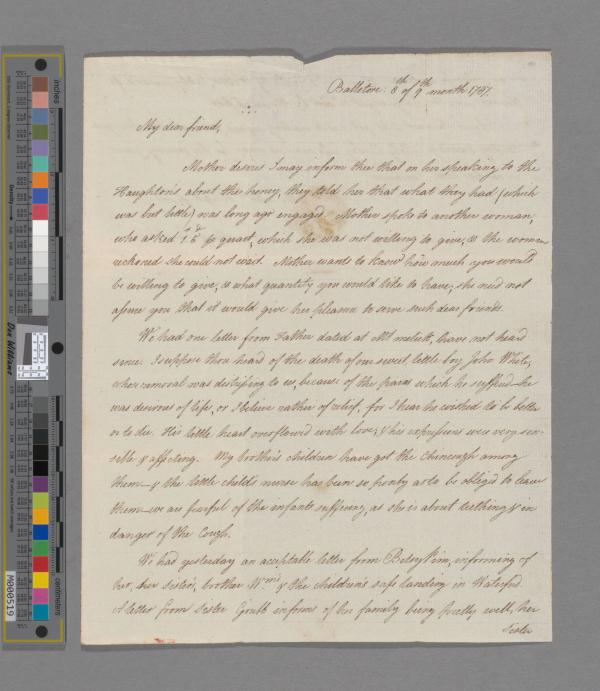 Balletore: 8th of 9th month 1787.
My dear friend,
Mother desires I may inform thee that on her speaking to the
Haughton's about their honey, they told her that what they had (which
was but little) was long ago engaged. Mother spoke to another woman,
who asked 1.s 5.d quart, which she was not willing to give, & the woman
reckoned she could not wait. Mother wants to know how much you would
be willing to give, & what quantity you would like to have, she need not
assure you that it would give her pleasure to serve such dear friends.
We had one letter from Father dated at have not heard
since. I suppose thou heard of the death of our sweet little boy John White,
whose removal was to us because of the pain which he suffered—he
was desirous of life, or I believe rather of relief, for I hear he wished to be better
or to die. His little heart overflow'd with love, & his expressions were very sen-
sible & affecting. My brother's children have got the Chincough among
them—& the little child's nurse has been so as to be obliged to leave
them—we are fearful of the infant's suffering, as she is about teething & in
danger of the Cough.
We had yesterday an acceptable letter from Betsy Pim, informing of
her, her sister, brother Wm's & the children's safe landing in Waterford.
A letter from Sister Grubb informs of her family being pretty well, her
Sister
inches
centimeters
Don Williams
M000519